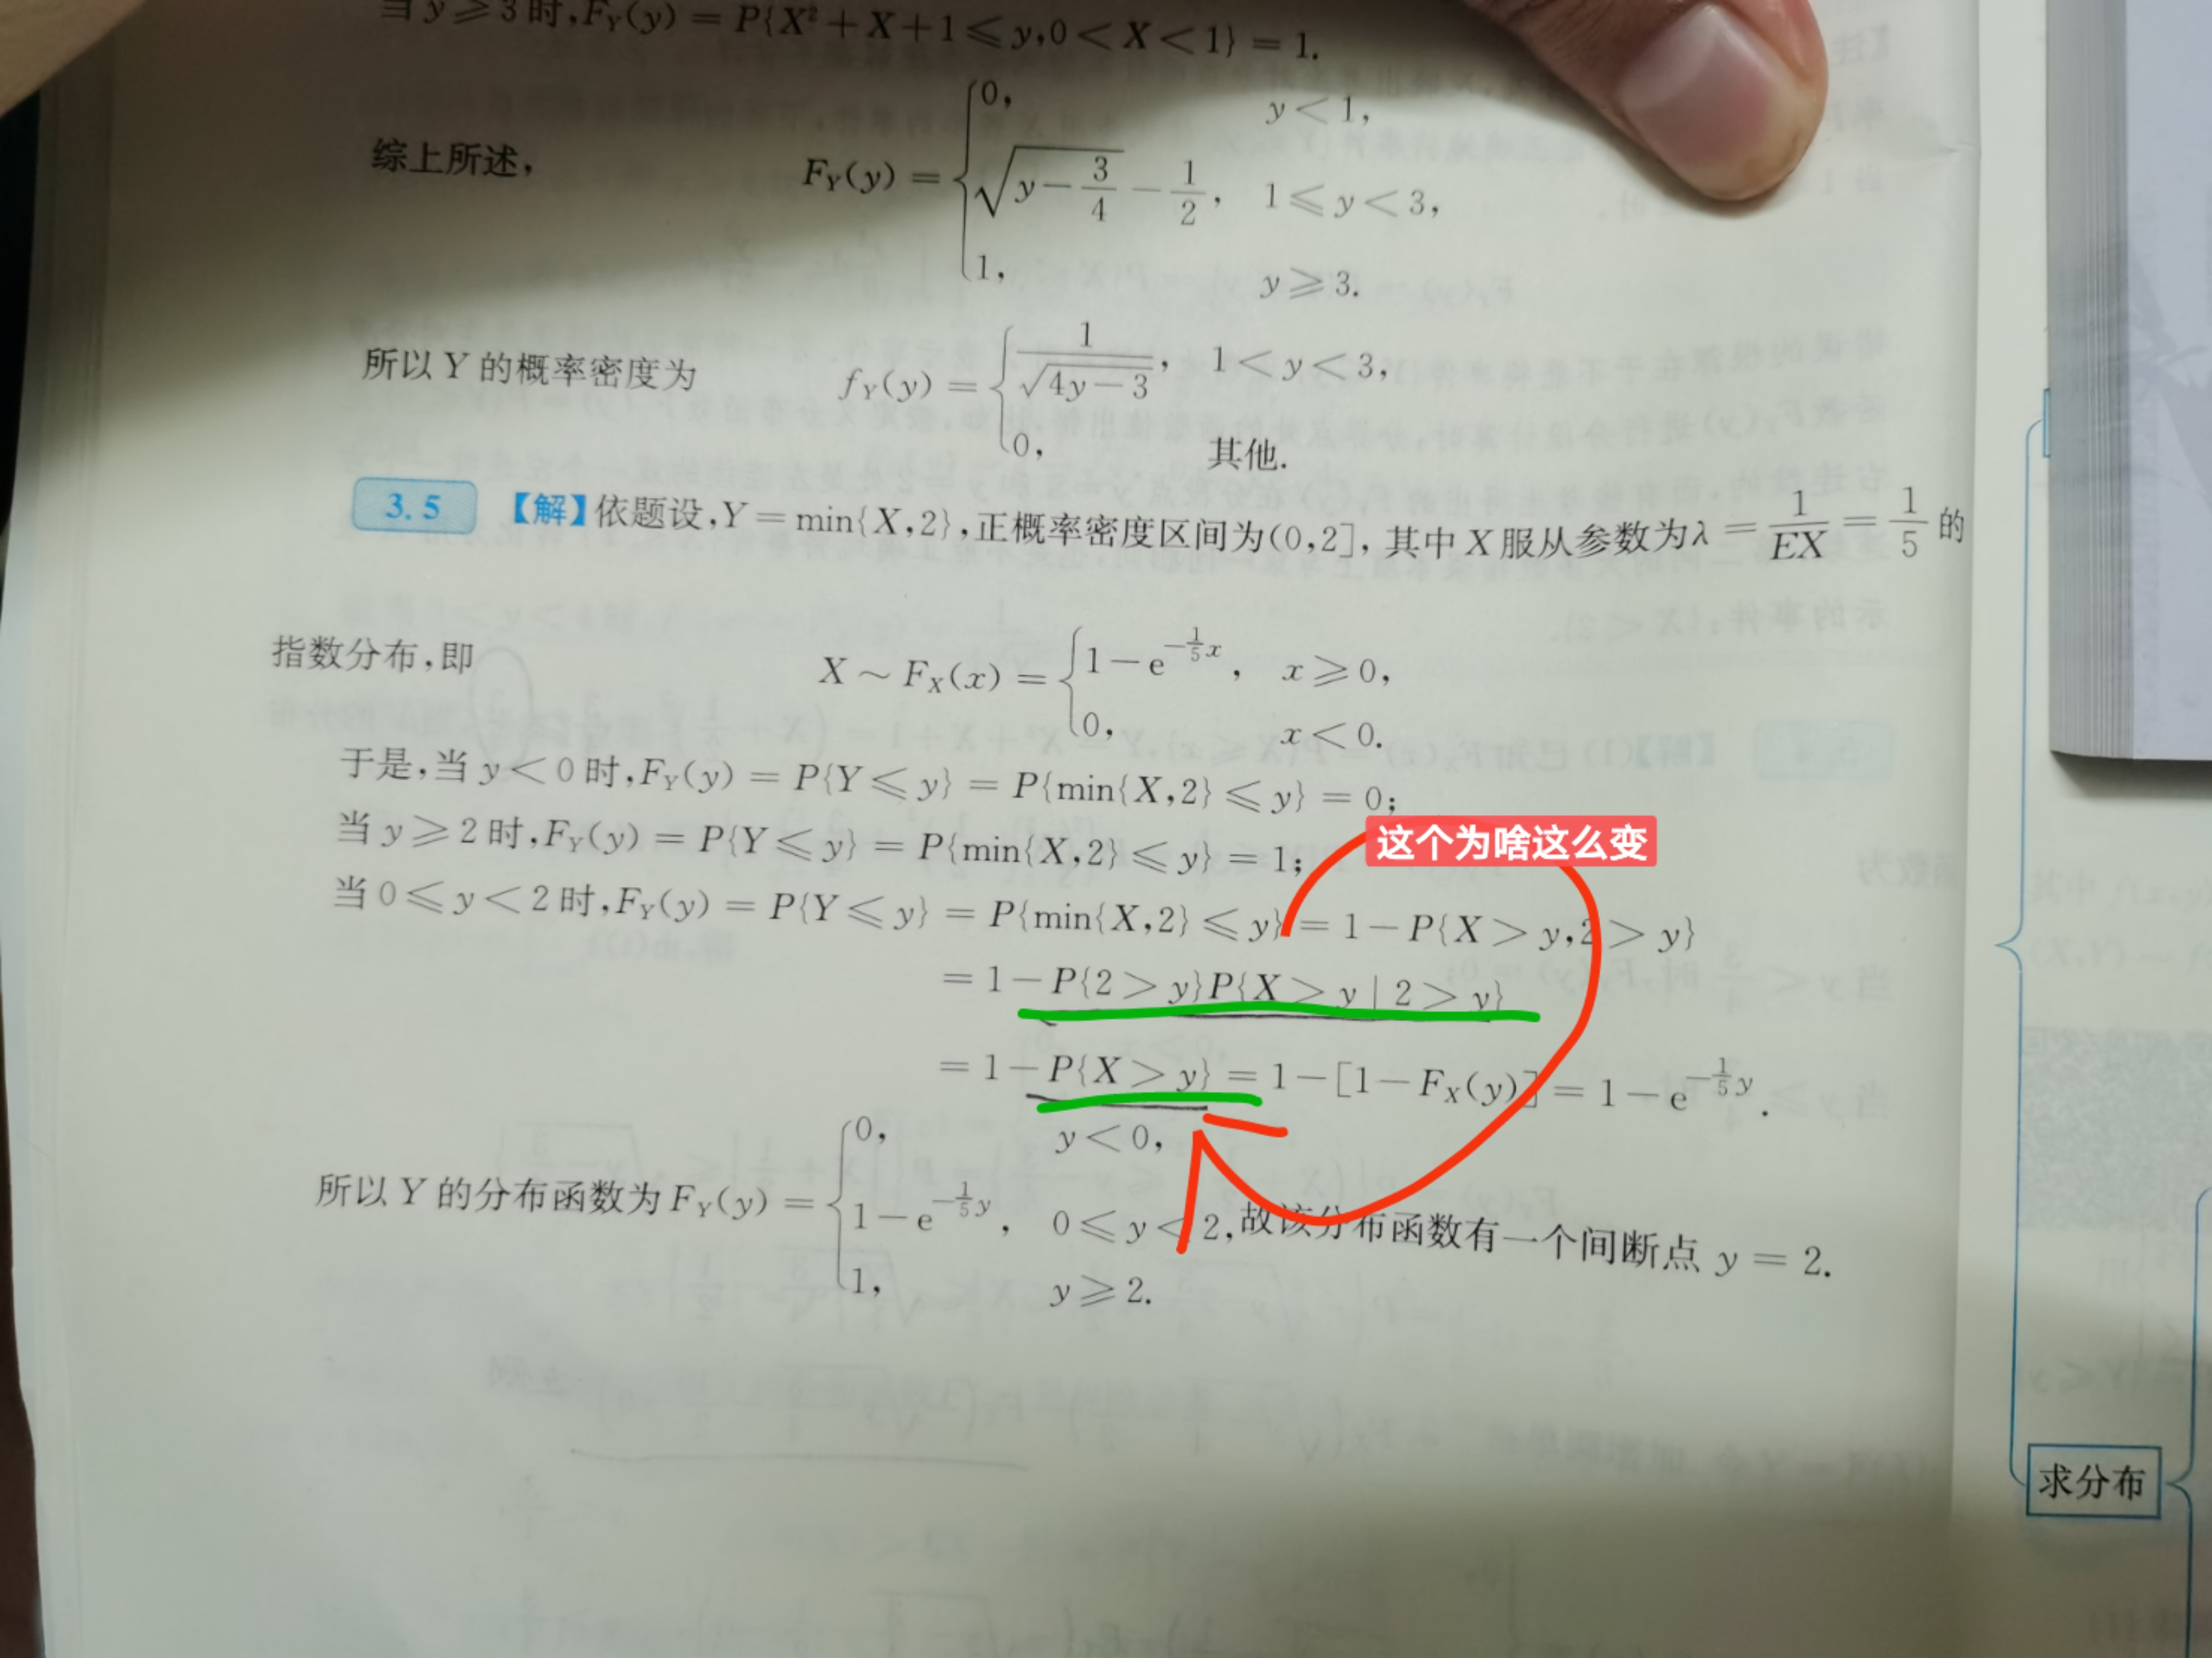 当 y ⩾ 3 时,F_Y(y) = P{X² + X + 1 ⩽ y, 0 < X < 1} = 1.
综上所述, F_Y(y) = { 0, y < 1,
√(y − 3/4) − 1/2, 1 ⩽ y < 3,
1, y ⩾ 3.
所以 Y 的概率密度为 f_Y(y) = { 1/√(4y − 3), 1 < y < 3,
0, 其他.
3.5 【解】依题设,Y = min{X,2},正概率密度区间为(0,2], 其中 X 服从参数为 λ = 1/EX = 1/5 的
指数分布,即 X ~ F_X(x) = { 1 − e^(−1/5 x), x ⩾ 0,
0, x < 0.
于是,当 y < 0 时,F_Y(y) = P{Y ⩽ y} = P{min{X,2} ⩽ y} = 0;
当 y ⩾ 2 时,F_Y(y) = P{Y ⩽ y} = P{min{X,2} ⩽ y} = 1;
这个为啥这么变
当 0 ⩽ y < 2 时,F_Y(y) = P{Y ⩽ y} = P{min{X,2} ⩽ y} = 1 − P{X > y, 2 > y}
= 1 − P{2 > y}P{X > y | 2 > y}
= 1 − P{X > y} = 1 − [1 − F_X(y)] = 1 − e^(−1/5 y).
所以 Y 的分布函数为 F_Y(y) = { 0, y < 0,
1 − e^(−1/5 y), 0 ⩽ y < 2,故该分布函数有一个间断点 y = 2.
1, y ⩾ 2.
求分布